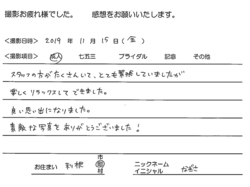 撮影お疲れ様でした。 感想をお願いいたします。
<撮影日時> 2019 年 11 月 15 日 (金)
<撮影項目> 成人 ・ 七五三 ブライダル 記念 その他
スタッフの方がたくさんいて、とても緊張していましたが
楽しくリラックスしてできました。
良い思い出になりました。
素敵な写真をありがとうございました!
お住まい 利根 市 町 村
ニックネーム
イニシャル